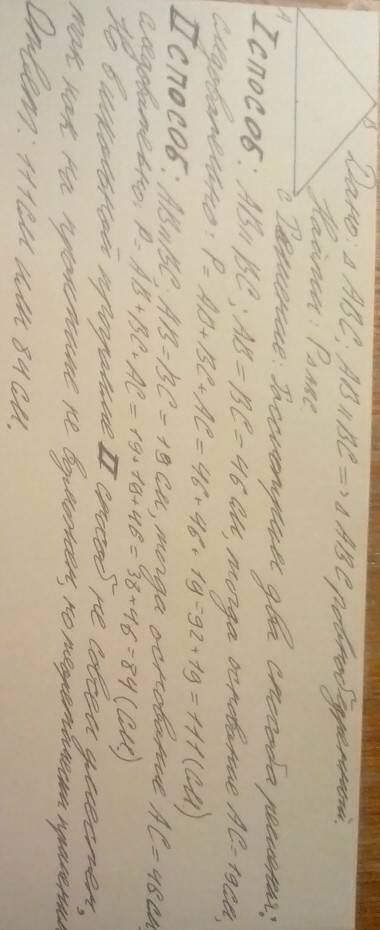 Дано: △ABC; AB и BC => △ABC равнобедренный.
Найти: P△ABC
Решение: Рассмотрим два способа решения:
I способ: AB и BC; AB = BC = 46 см, тогда основание AC = 19 см,
следовательно: P = AB + BC + AC = 46 + 46 + 19 = 92 + 19 = 111 (см)
II способ: AB и BC; AB = BC = 19 см, тогда основание AC = 46 см
следовательно: P = AB + BC + AC = 19 + 19 + 46 = 38 + 46 = 84 (см)
Но в школьной программе II способ не совсем уместен,
так как на практике не
Ответ: 111 см или 84 см.
A
B
C